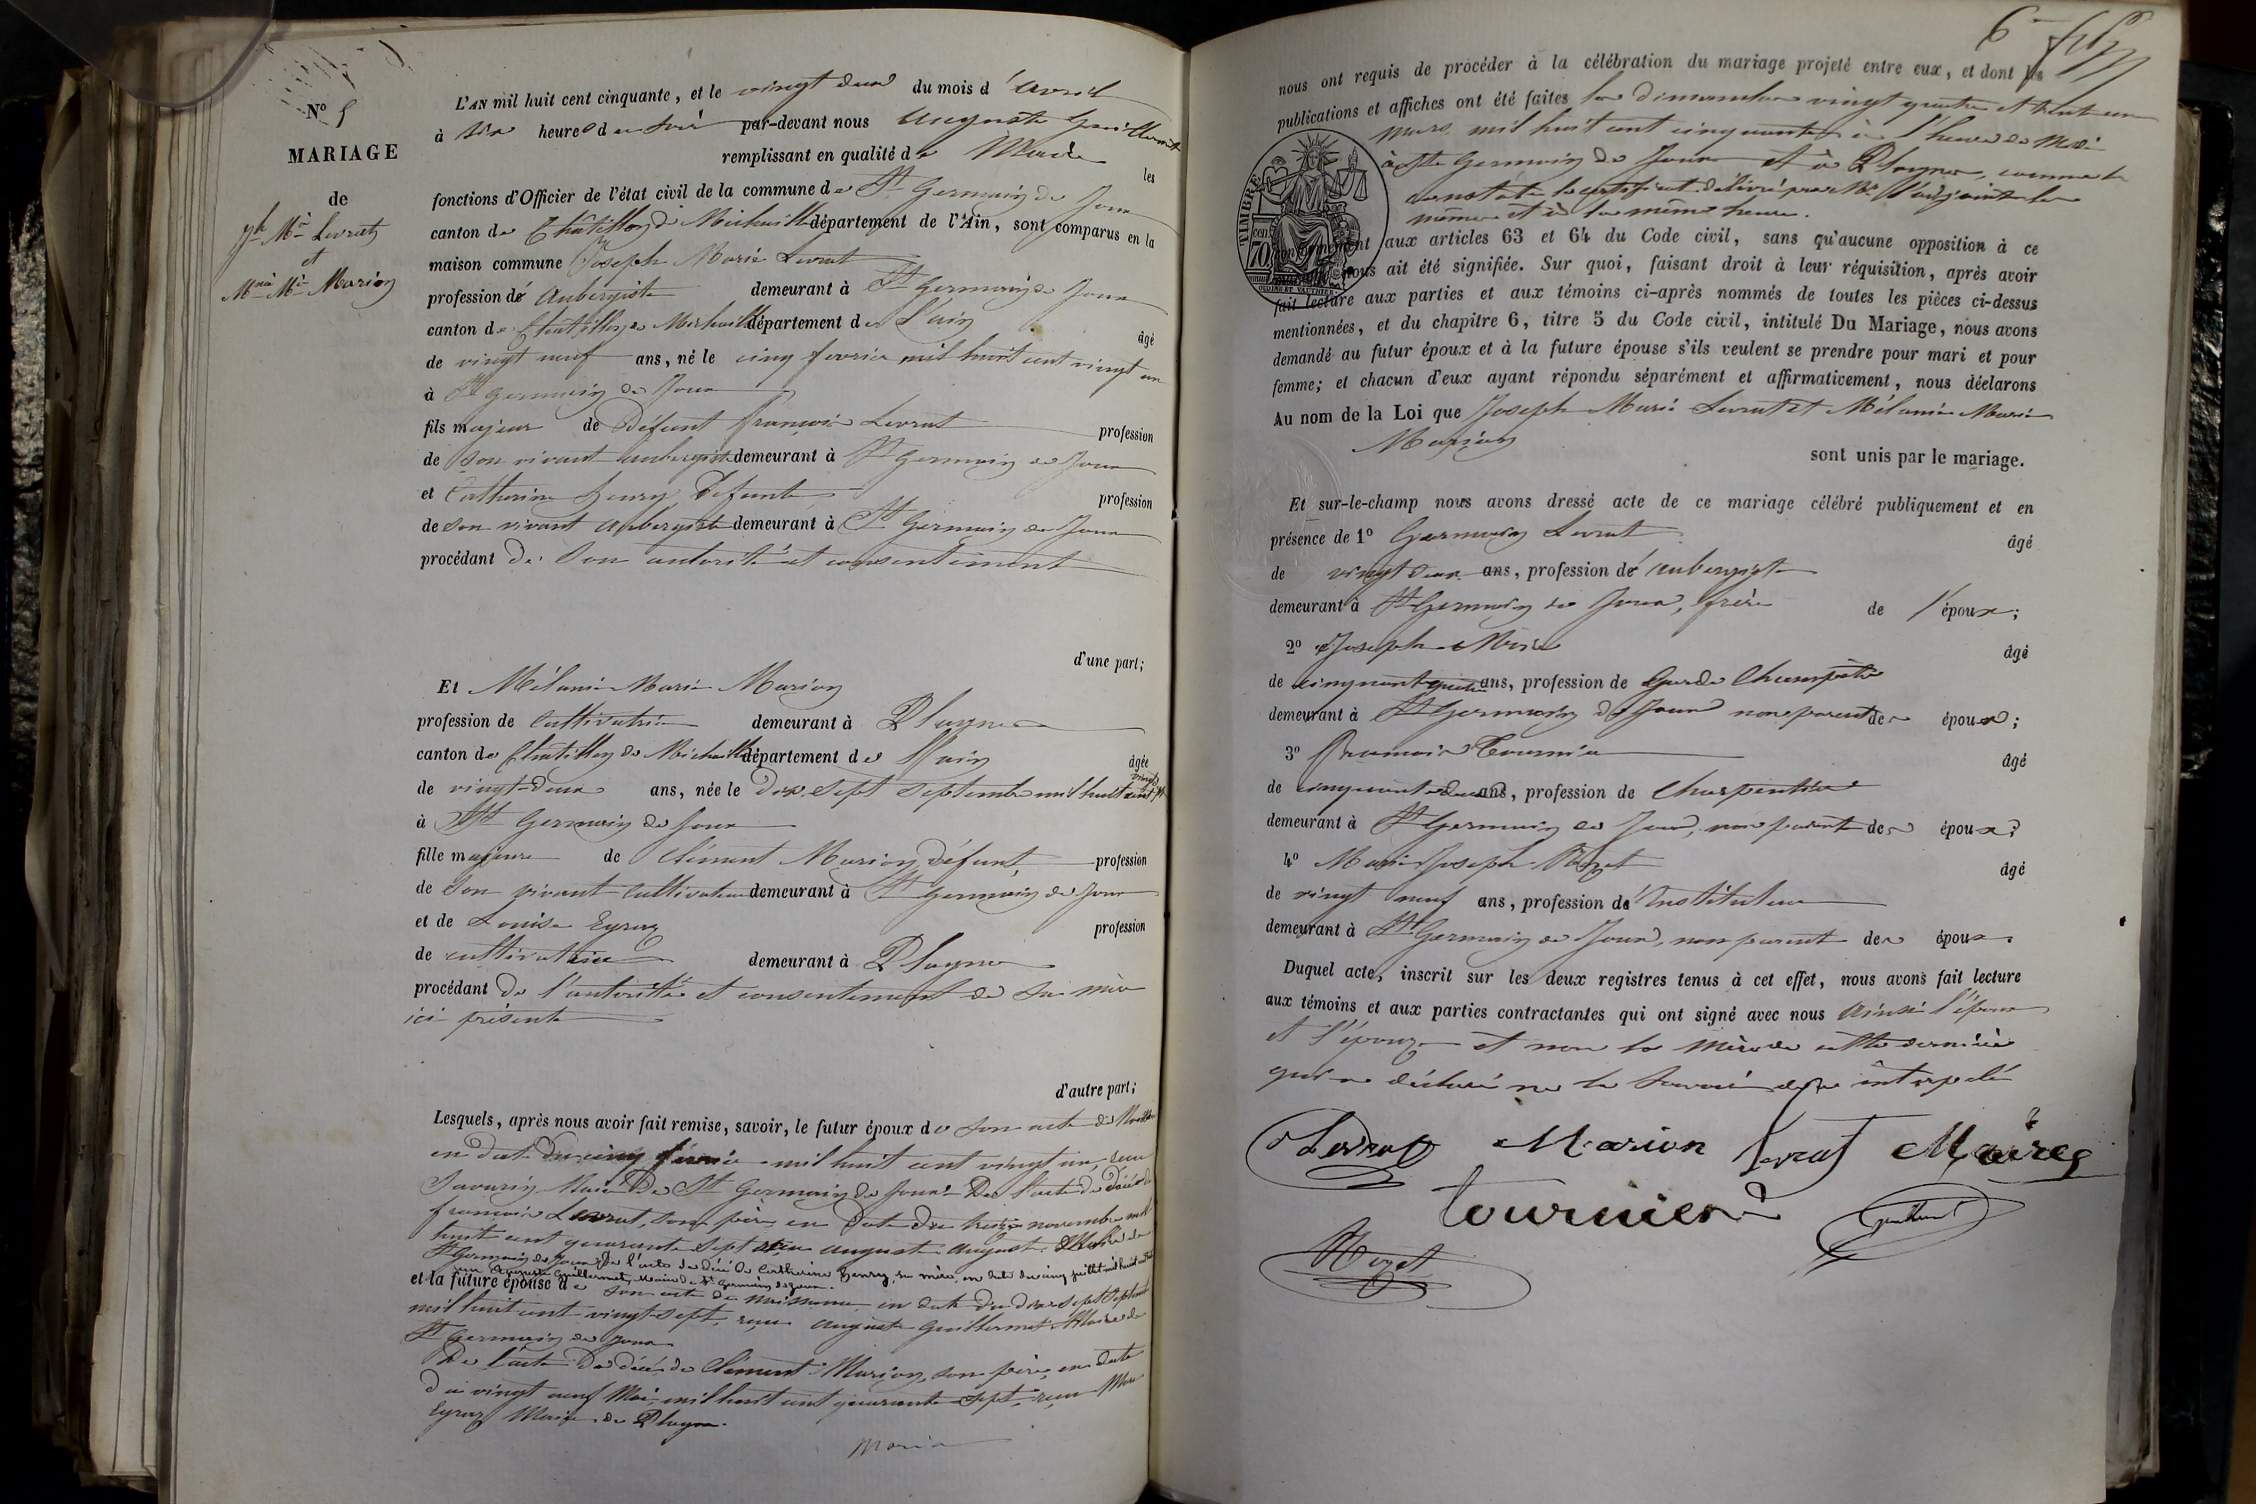 N° 5
MARIAGE
de
Jh Mie Levrat
et
Mnie Mie Marion
L'AN mil huit cent cinquante, et le vingt deux du mois d'avril
à six heures du soir par-devant nous Auguste Guillermet
remplissant en qualité de Maire les
fonctions d'Officier de l'état civil de la commune de St Germain de Joux
canton de Châtillon de Michaille département de l'Ain, sont comparus en la
maison commune Joseph Marie Levrat
profession de Aubergiste demeurant à St Germain de Joux
canton de Chatillon de Michaille département de l'ain âgé
de vingt neuf ans, né le cinq fevrier mil huit cent vingt un
à St Germain de Joux
fils majeur de Défunt françois Levrat profession
de son vivant aubergiste demeurant à St Germain de Joux
et Catherine Henry, Défunte profession
de son vivant Aubergiste demeurant à St Germain de Joux
procédant de son autorité et consentement
d'une part;
Et Mélanie Marie Marion
profession de Cultivatrice demeurant à Plagnes
canton de Chatillon de Michaille département de l'ain âgée
de vingt-deux ans, née le dix sept septembre mil huit cent vingt sept
à St Germain de Joux
fille majeure de Clément Marion, défunt, profession
de son vivant Cultivateur demeurant à St Germain de Joux
et de Louise Eyraz profession
de cultivatrice demeurant à Plagnes
procédant de l'autorité et consentement de sa mère
ici présente
d'autre part;
Lesquels, après nous avoir fait remise, savoir, le futur époux de son acte de
en date du cinq février mil huit cent vingt un, reçu
Savarin Maire de St Germain de Joux. De l'acte de décès de
francois Levrat, son père en date du treize novembre mil
huit cent quarante sept reçu auguste Maire de
St Germain de Joux De l'acte de décé de Catherine Henry, sa mère, en date du cinq juillet mil huit cent
reçu Auguste Guillermet, Maire de St Germain de Joux.
et la future épouse de son acte de naissance en date du dix sept septembre
mil huit cent vingt sept, reçu auguste Guillermet Maire de
St Germain de Joux
De l'acte de décé de Clément Marion, son père, en date
du vingt neuf Mai mil huit cent quarante sept, reçu
Eyraz Maire de Plagnes.
6
nous ont requis de procéder à la célébration du mariage projeté entre eux, et dont les
publications et affiches ont été faites les dimanches vingt quatre et trente un
mars mil huit cent cinquante à l'heure de Midi
à St Germain de Joux et à Plagnes, comme le
constate le certificat délivré par Mr l'adjoint le
même et à la même heure.
TIMBRE
70
conformément aux articles 63 et 64 du Code civil, sans qu'aucune opposition à ce
nous ait été signifiée. Sur quoi, faisant droit à leur réquisition, après avoir
fait lecture aux parties et aux témoins ci-après nommés de toutes les pièces ci-dessus
mentionnées, et du chapitre 6, titre 5 du Code civil, intitulé Du Mariage, nous avons
demandé au futur époux et à la future épouse s'ils veulent se prendre pour mari et pour
femme; et chacun d'eux ayant répondu séparément et affirmativement, nous déclarons
Au nom de la Loi que Joseph Marie Levrat et Mélanie Marie
Marion
sont unis par le mariage.
Et sur-le-champ nous avons dressé acte de ce mariage célébré publiquement et en
présence de 1° Germain Levrat âgé
de vingt deux ans, profession de aubergiste
demeurant à St Germain de Joux, frère de l'époux;
2° Joseph âgé
de cinquante quatre ans, profession de Garde Champêtre
demeurant à St Germain de Joux non parent des époux;
3° François Tournier âgé
de cinquante deux ans, profession de Charpentier
demeurant à St Germain de Joux, non parent des époux;
4° Marie Joseph Rozet âgé
de vingt neuf ans, profession de Instituteur
demeurant à St Germain de Joux, non parent des époux.
Duquel acte, inscrit sur les deux registres tenus à cet effet, nous avons fait lecture
aux témoins et aux parties contractantes qui ont signé avec nous ainsi l'époux
et l'épouse et non la Mère de cette dernière
qui a déclaré ne le savoir de ce interpelé
Levrat Marion Levrat
Tournier
Rozet